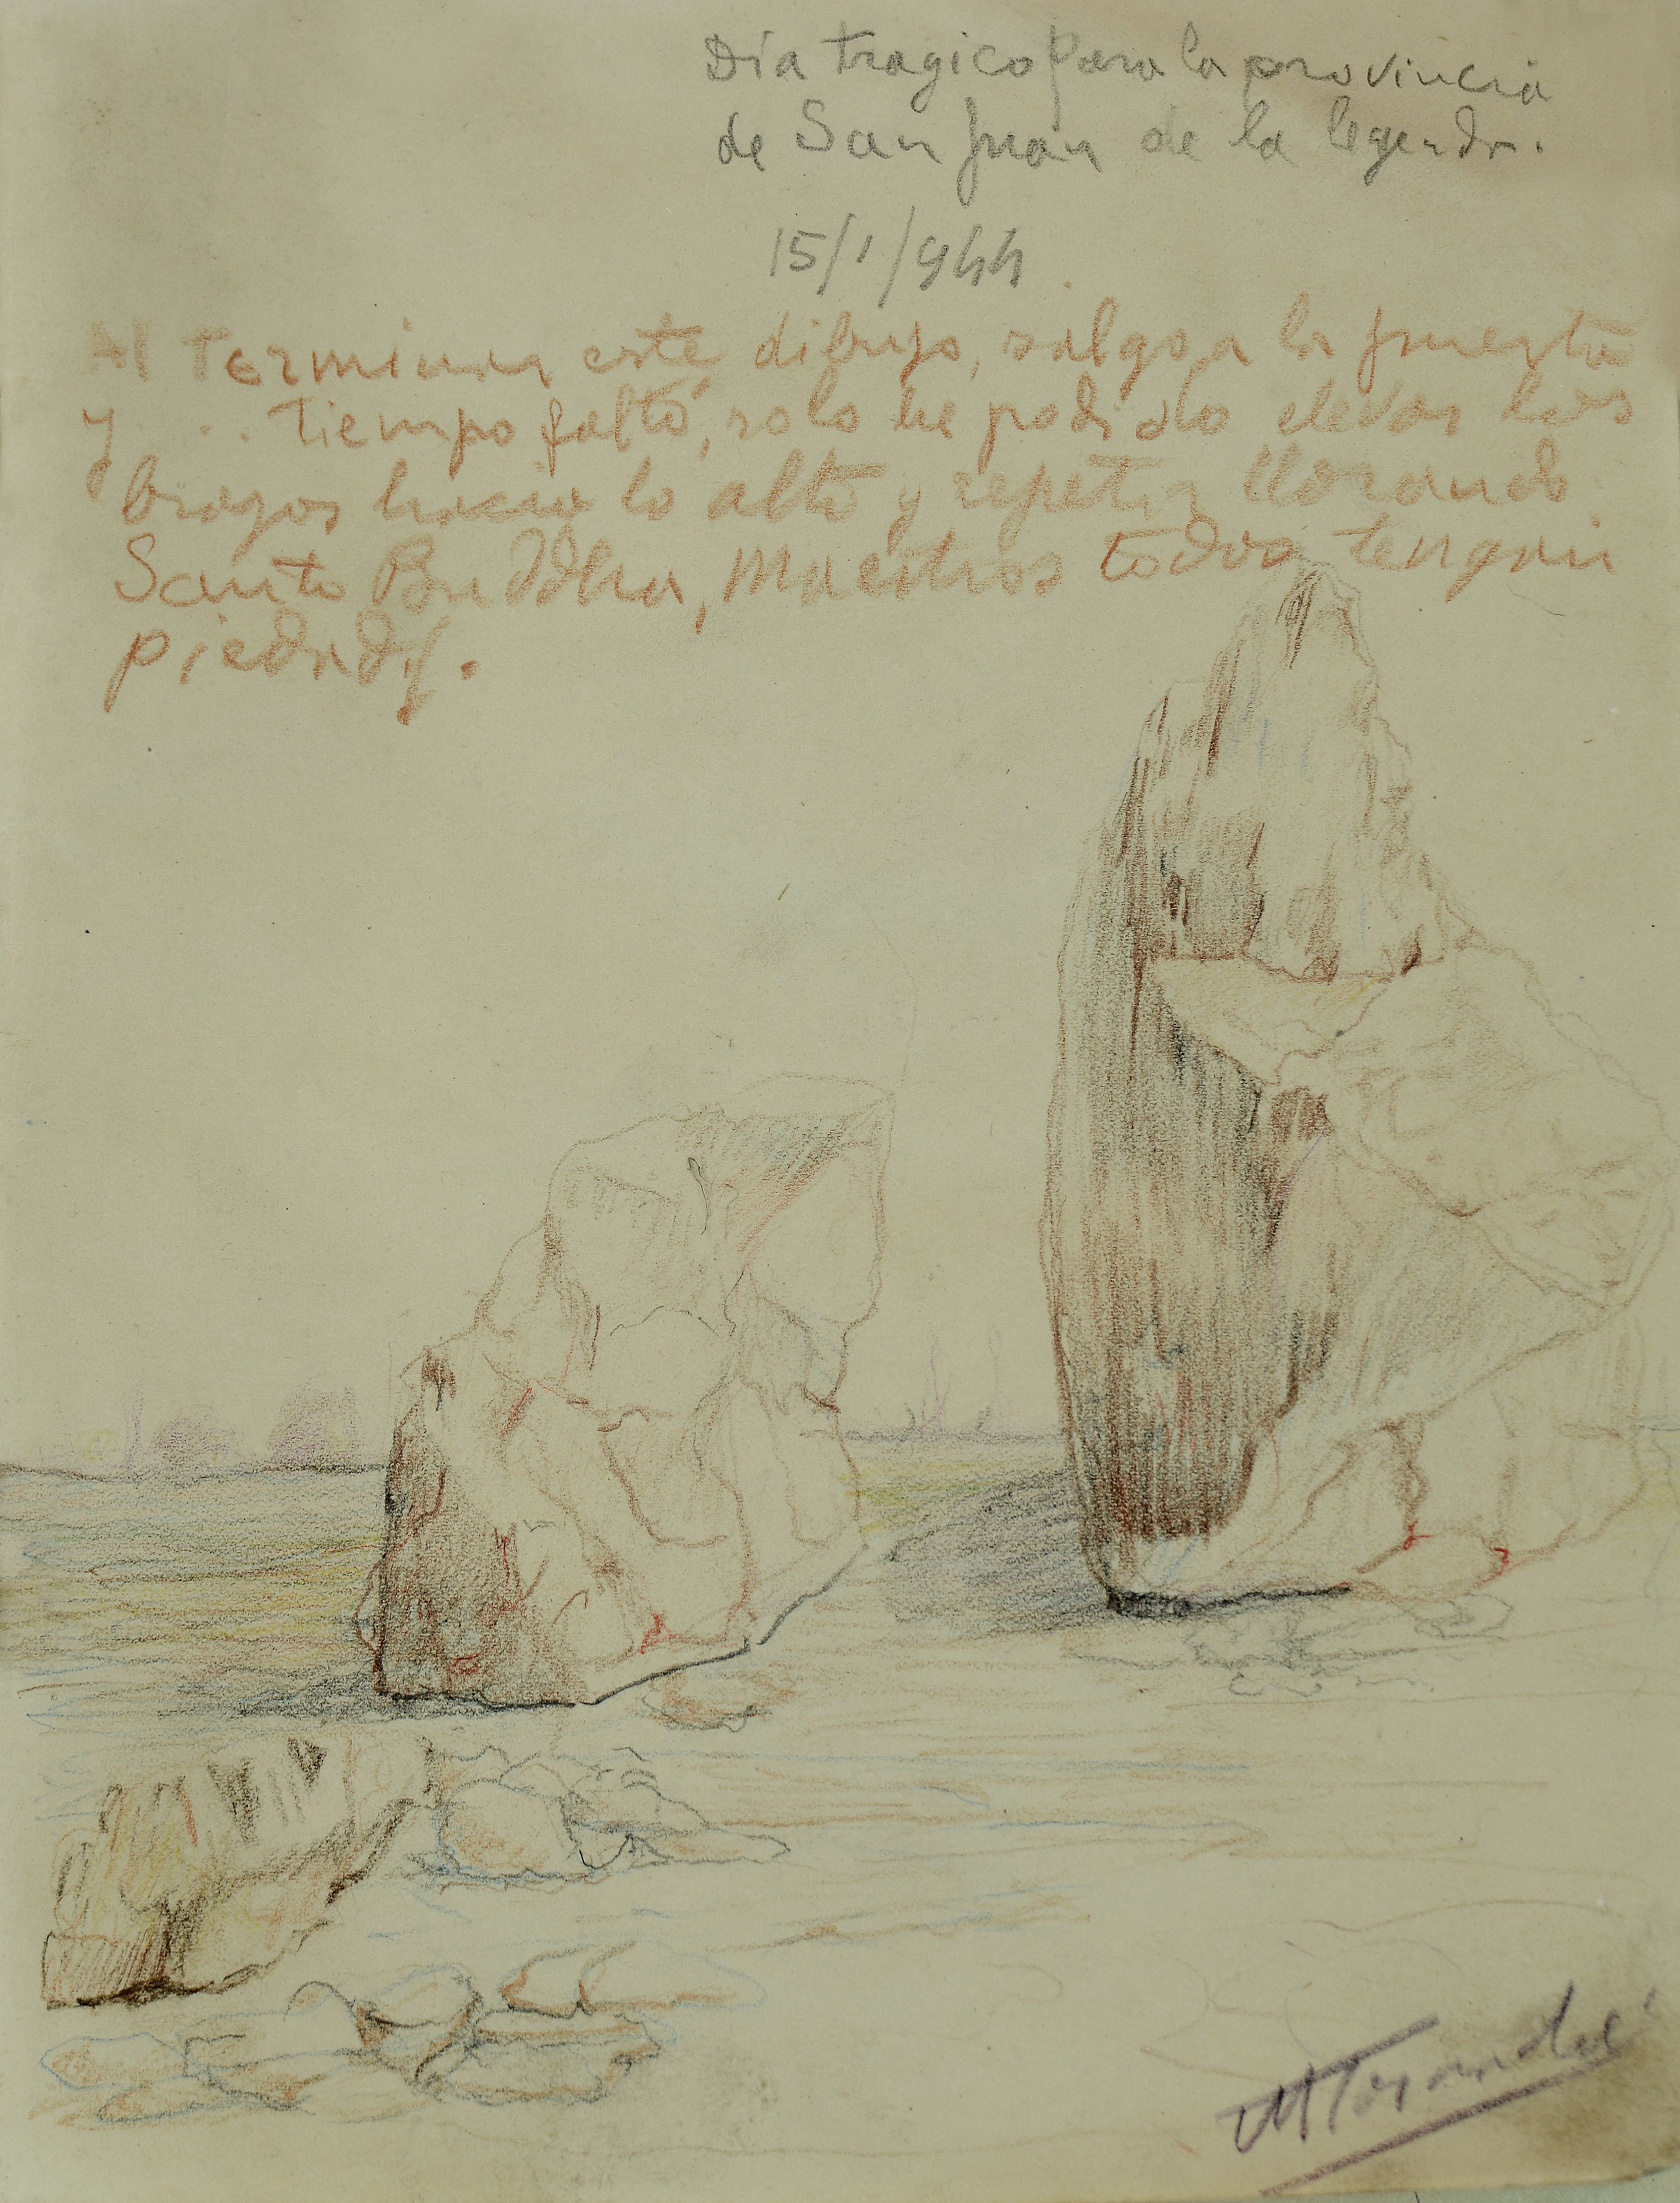 Dia tragico Para la provincia
de San Juan de la legenda.
15/1/944
Al terminar este dibujo, salgo a la puerta
y .. tiempo faltó, solo he podido elevar los
brazos hacia lo alto y repetir llorando
Santo Buddha, Maestros todos tengan
piedad.